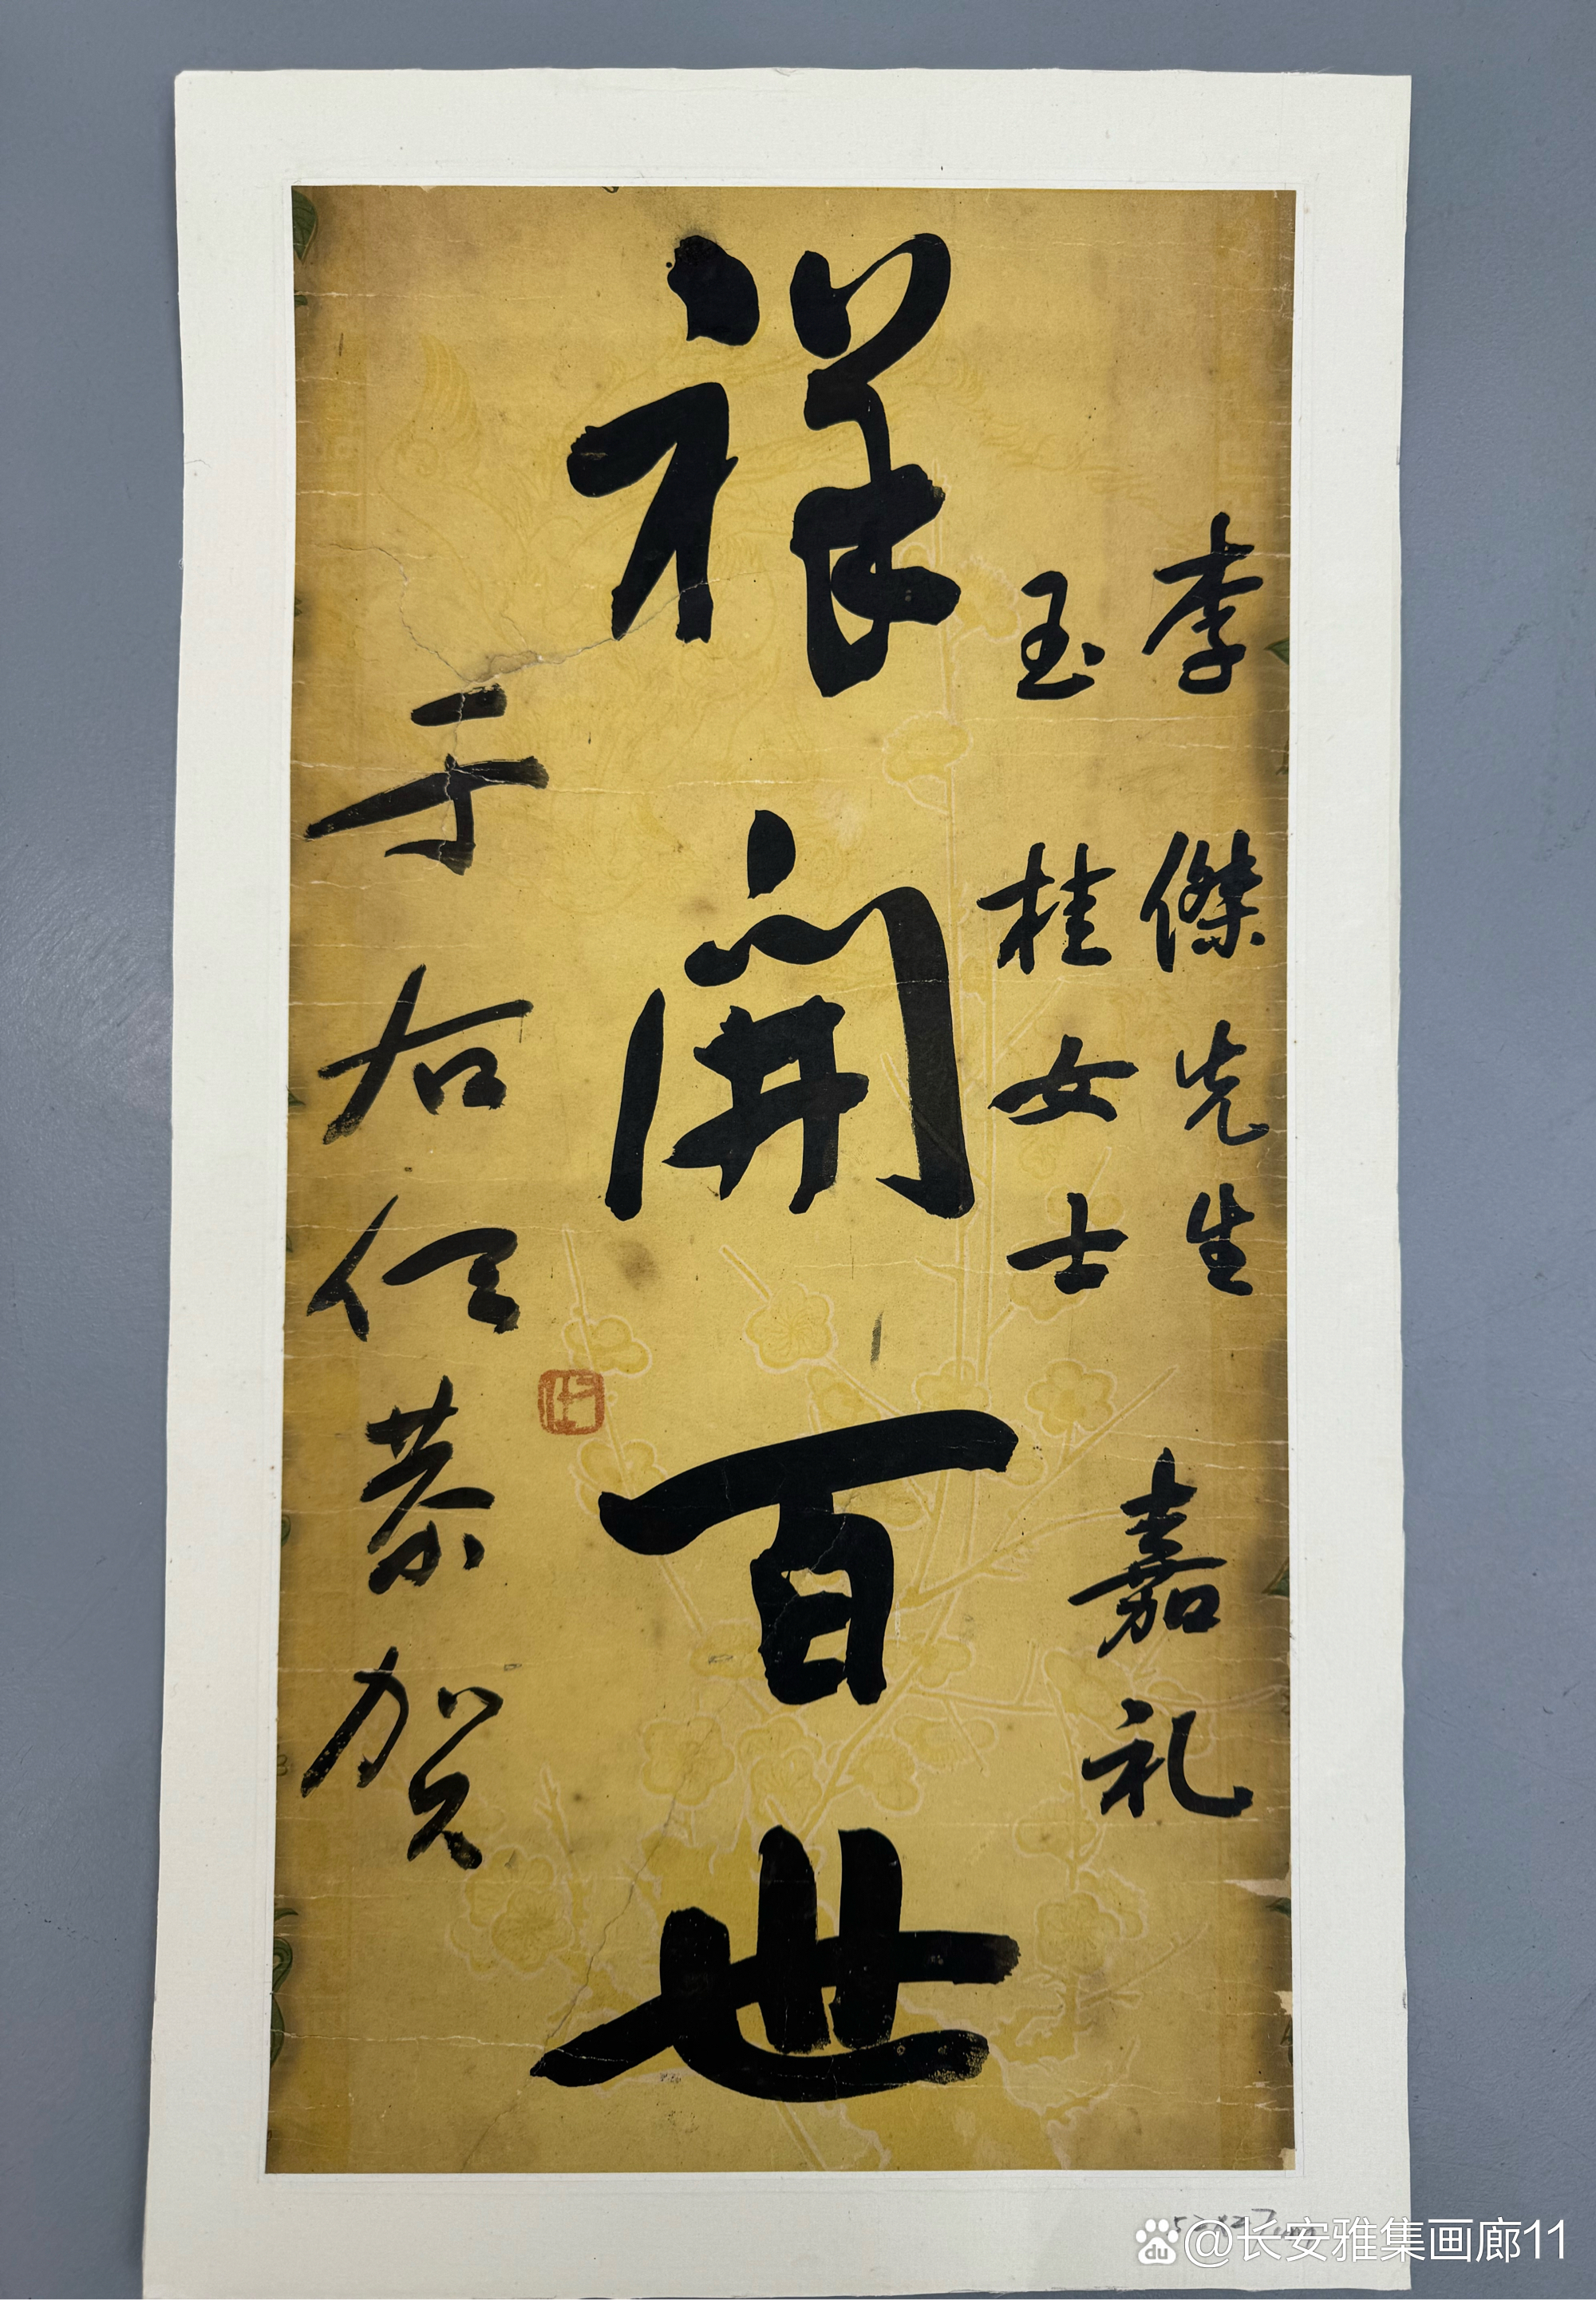 李傑先生
玉桂女士
嘉礼
祥開百世
于右任恭贺
@长安雅集画廊11